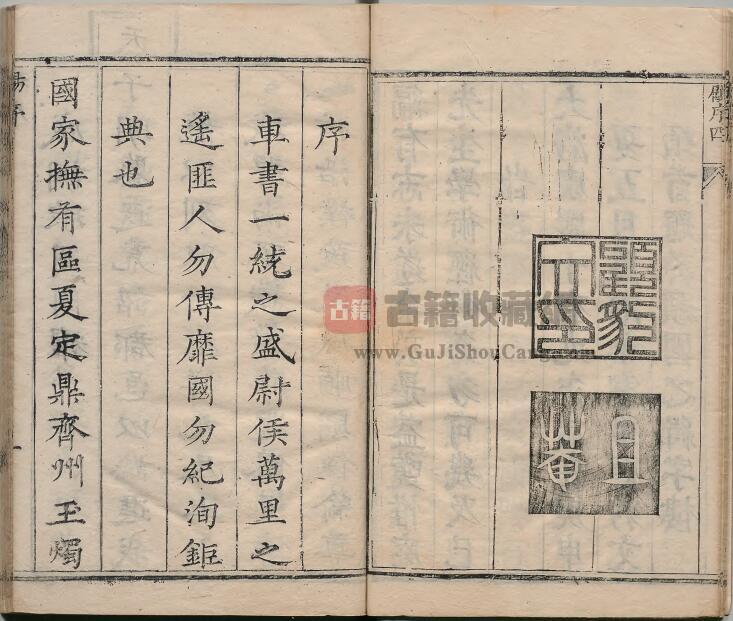 序四
且菴
序
車書一統之盛尉侯萬里之
遙匪人勿傳靡國勿紀洵鉅
典也
國家撫有區夏定鼎齊州玉燭
序
一
古籍
古籍收藏
www.GuJiShouCang